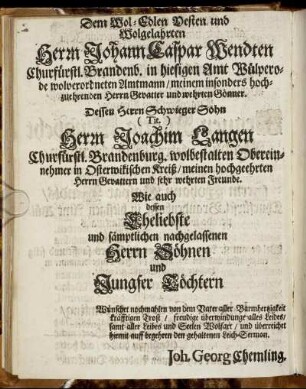 Dem Wol-Edlen Vesten und
Wolgelahrten
Herrn Johann Caspar Wendten
Churfürstl. Brandenb. in hiesigen Amt Wülpero-
de wolverordneten Amtmann / meinem insonders hoch-
zuehrenden Herrn Gevatter und wehrten Gönner.
Dessen Herrn Schwieger Sohn
(Tit.)
Herrn Joachim Langen
Churfürstl. Brandenburg. wolbestalten Oberein-
nehmer in Osterwikischen Kreiß / meinen hochgeehrten
Herrn Gevattern und sehr wehrten Freunde.
Wie auch
dessen
Eheliebste
und sämptlichen nachgelassenen
Herrn Söhnen
und
Jungfer Töchtern
Wünschet nochmahlen von dem Vater aller Barmhertzigkeit
kräfftigen Trost / freudige überwindunge alles Leides /
samt aller Leibes und Seelen Wolfart / und überreichet
hiemit auff begehren der gehaltenen Leich-Sermon.
Joh. Georg Chemling.